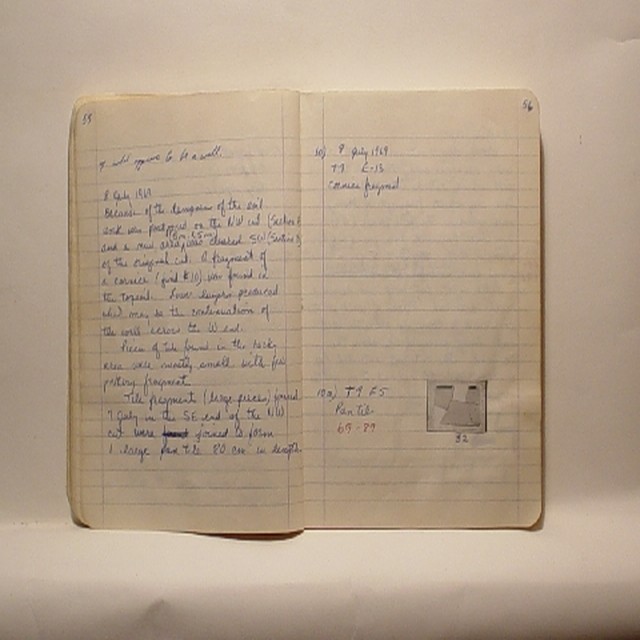 55
8 July 1969
Because of the dampness of the soil
work was postponed on the NW cut (Section
and a new area was cleared SW (Section
(5m. x 5m)
of the original cut. A fragment of
a cornice (find #10) was found in
the topsoil. Lower down produced
what may be the continuation of
the wall across the W end.
Pieces of tile found in the rocky
area were mostly small with few
pottery fragments
Tile fragments (large pieces) found
7 July in the SE end of the NW
cut were joined to form
1 large pan tile 80 cm in length
56
10) 8 July 1969
T9
cornice fragment
10a) T9 E5
Pan tile
69-89
32